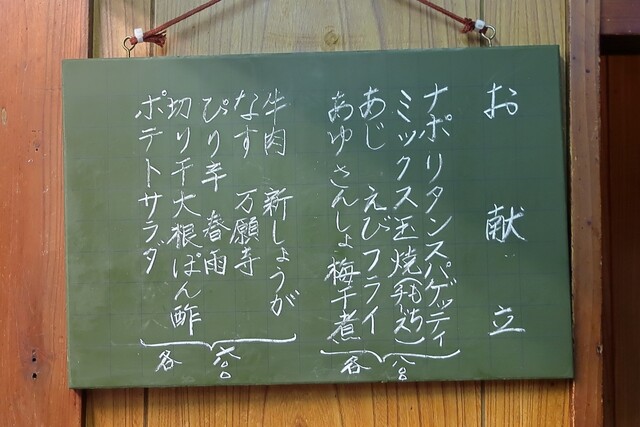 お献立
ナポリタンスパゲッティ
ミックス玉焼
あじ えびフライ
あゆ さんしょ梅干煮
各 八〇
牛肉 新しょうが
なす 万願寺
ぴり辛 春雨
切り干大根ぽん酢
ポテトサラダ
各 六〇